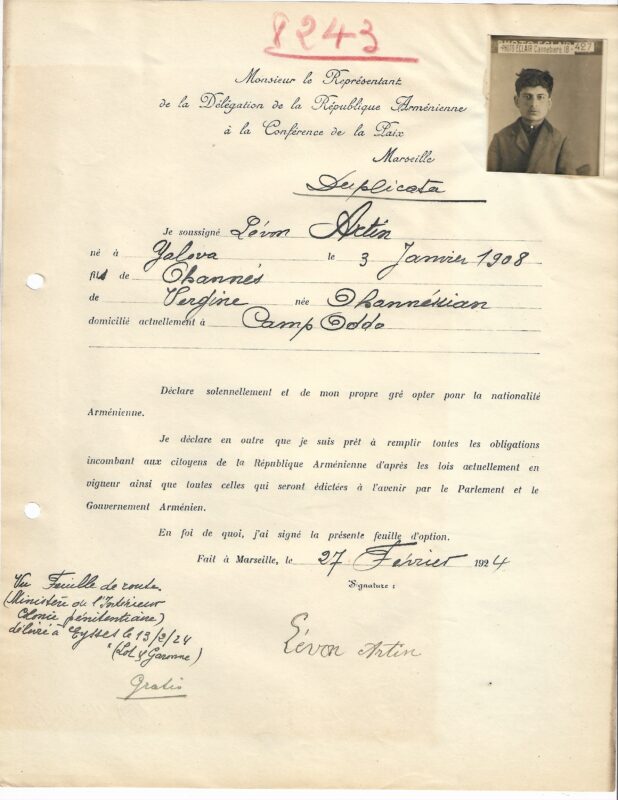 8243
PHOTO ECLAIR Cannebière 18 - 427
Monsieur le Représentant
de la Délégation de la République Arménienne
à la Conférence de la Paix
Marseille
Duplicata
Je soussigné Lévon Artin
né à Yalova le 3 Janvier 1908
fils de Ohannés
de Vergine née Ohannéssian
domicilié actuellement à Camp Oddo
Déclare solennellement et de mon propre gré opter pour la nationalité
Arménienne.
Je déclare en outre que je suis prêt à remplir toutes les obligations
incombant aux citoyens de la République Arménienne d'après les lois actuellement en
vigueur ainsi que toutes celles qui seront édictées à l'avenir par le Parlement et le
Gouvernement Arménien.
En foi de quoi, j'ai signé la présente feuille d'option.
Fait à Marseille, le 27 Février 1924
Signature :
Vu Feuille de route
(Ministère de l'Intérieur
Colonie pénitentiaire)
délivré à Eysses le 13/2/24
(Lot & Garonne)
Lévon Artin
Gratis